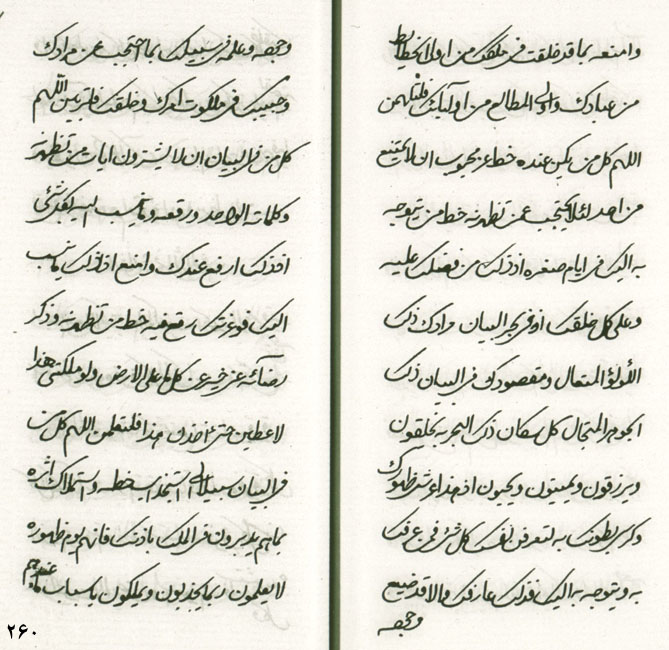 وامنعه بما قد خلقت فی خلقک من اولی الخطایط
من عبادک و اولی المطالع من اولیائک فلتلهمن
اللهم کل من یکن عنده خط عن محبوب ان لا یمتنع
من احد لئلا یحتجب عن تظهرنه خط من یتوجه
به الیک فی ایام صغره اذ ذلک من فضلک علیه
و علی کل خلقک اذ فی بحر البیان مرادک ذلک
اللؤلؤ المتعال و مقصودک فی البیان ذلک
الجوهر المتجال کل سکان ذلک البحر به یخلقون
و یرزقون و یمیتون و یحیون اذ هذا عرش ظهورک
و کرسی بطونک به لتعرفن نفسک کل شیء فمن عرفک
به و یتوجه به الیک فذلک عارفک والا قد ضیع
وجهه
وجهه و علمه فی سبیلک بما احتجب عن مرادک
و حبیبک فی ملکوت امرک و خلقک فلتربین اللهم
کل من فی البیان ان لا یشترون ایات من تظهرنه
و کلماته الواحد و رقعه و ما ینسب الیه بکل شیء
اذ ذلک ارفع عندک و امنع اذ ذلک ما ینسب
الیک فوعزتک رقع فیه خط من تظهرنه و ذکر
رضائه عنی خیر عن کل ما علی الارض ولو ملکنی هذا
لاعطین حتی اخذن هذا فلتعلمن اللهم کل من
فی البیان سبیلا الی استجذاب خطه و استملاک اثره
بما هم یدبرون فی الملک باذنک فانهم یوم ظهوره
لا یعلمون ربما یجذبون و یملکون باسباب ما هم
عندهم
۲۶۰